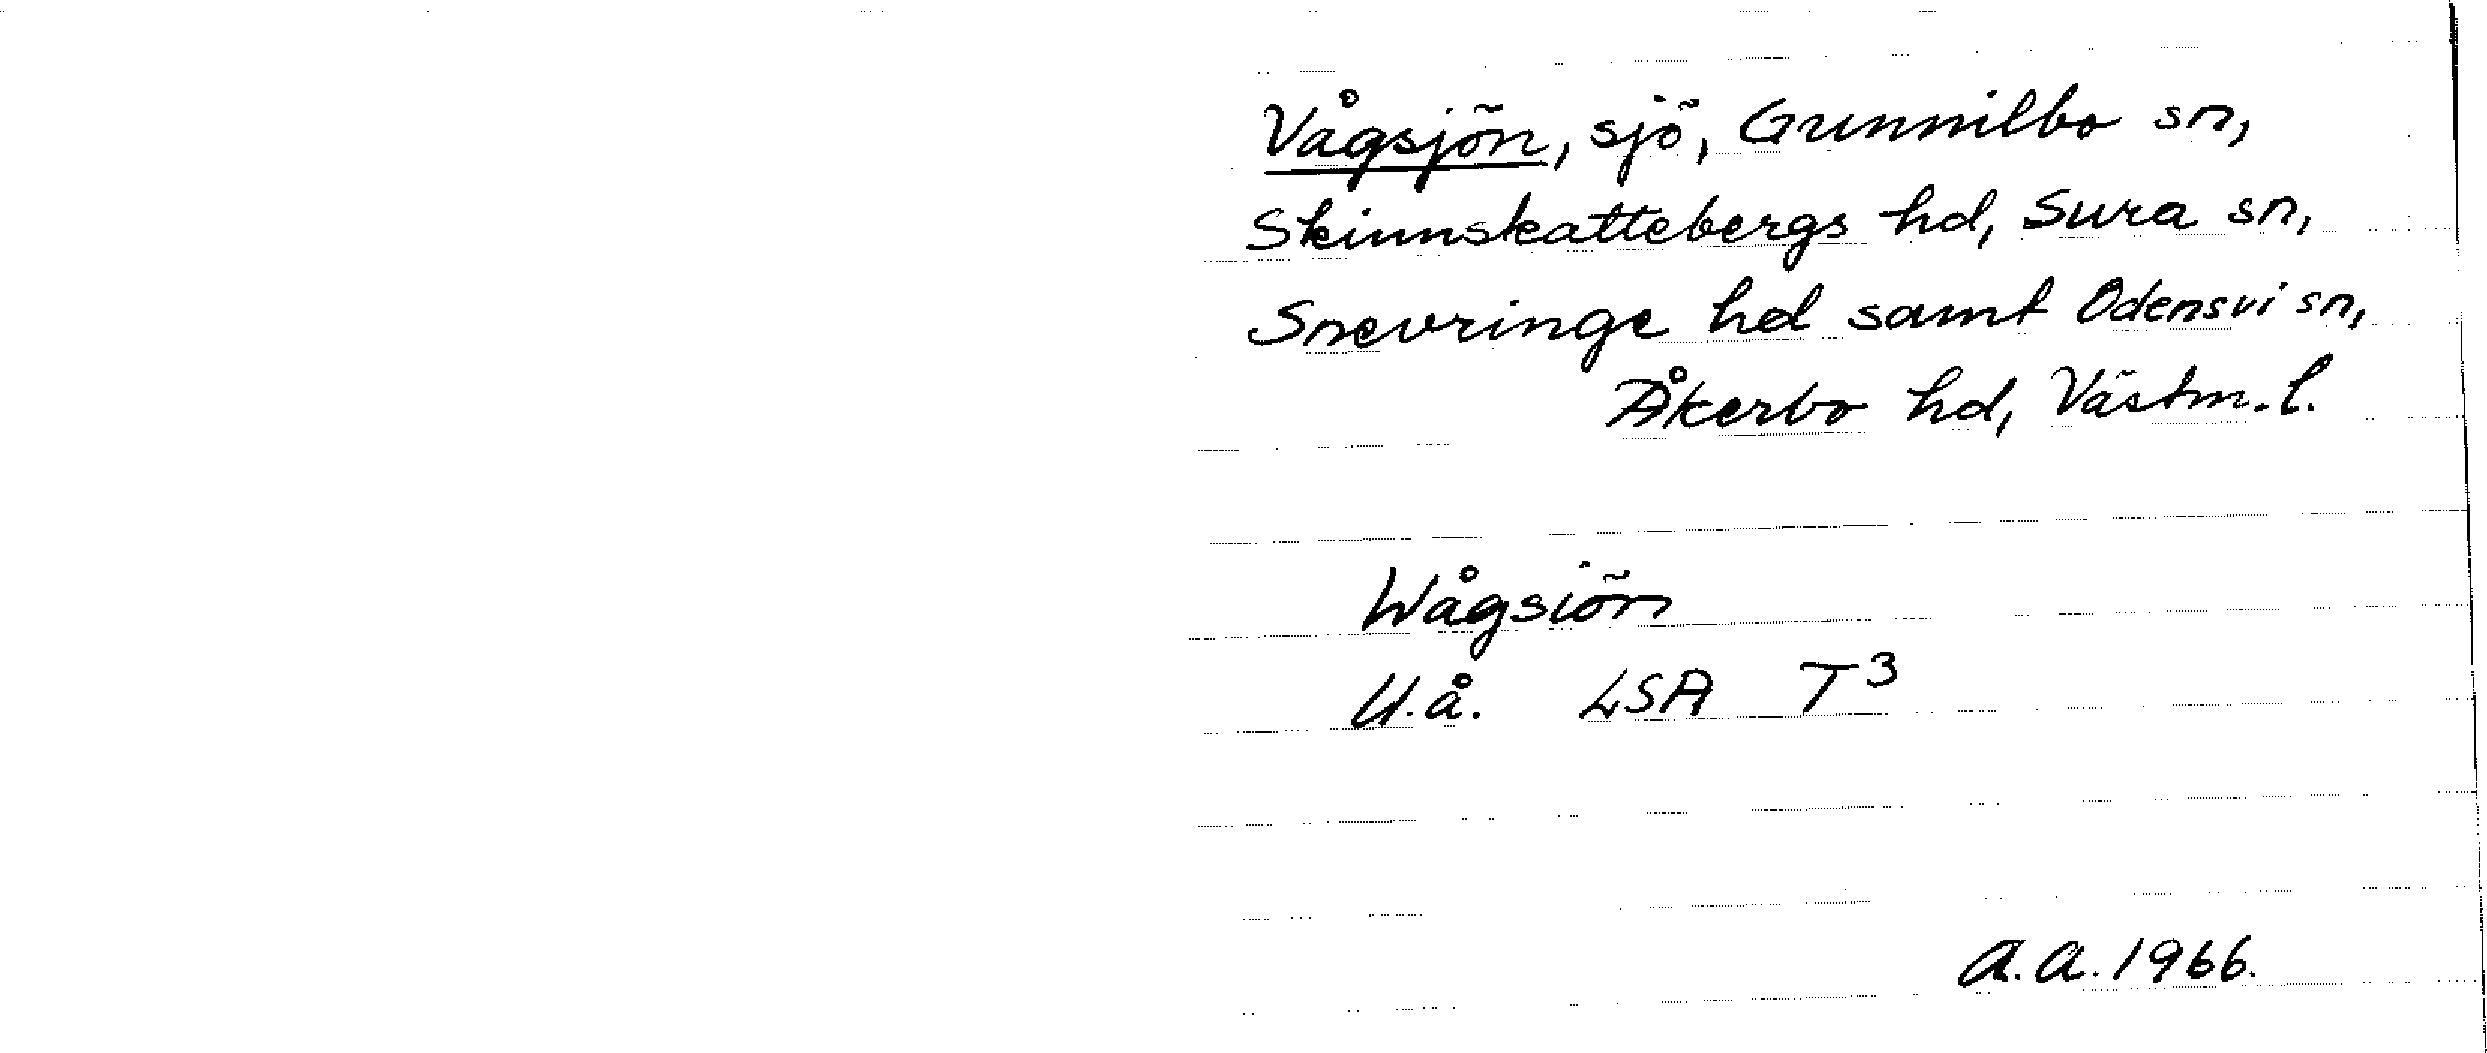 Vågsjön, sjö, Gunnilbo sn,
Skinnskattebergs hd, Sura sn,
Snevringe hd samt Odensvi sn,
Åkerbo hd, Västm. l.
Wågsiön
U.å. LSA T³
A.A. 1966.